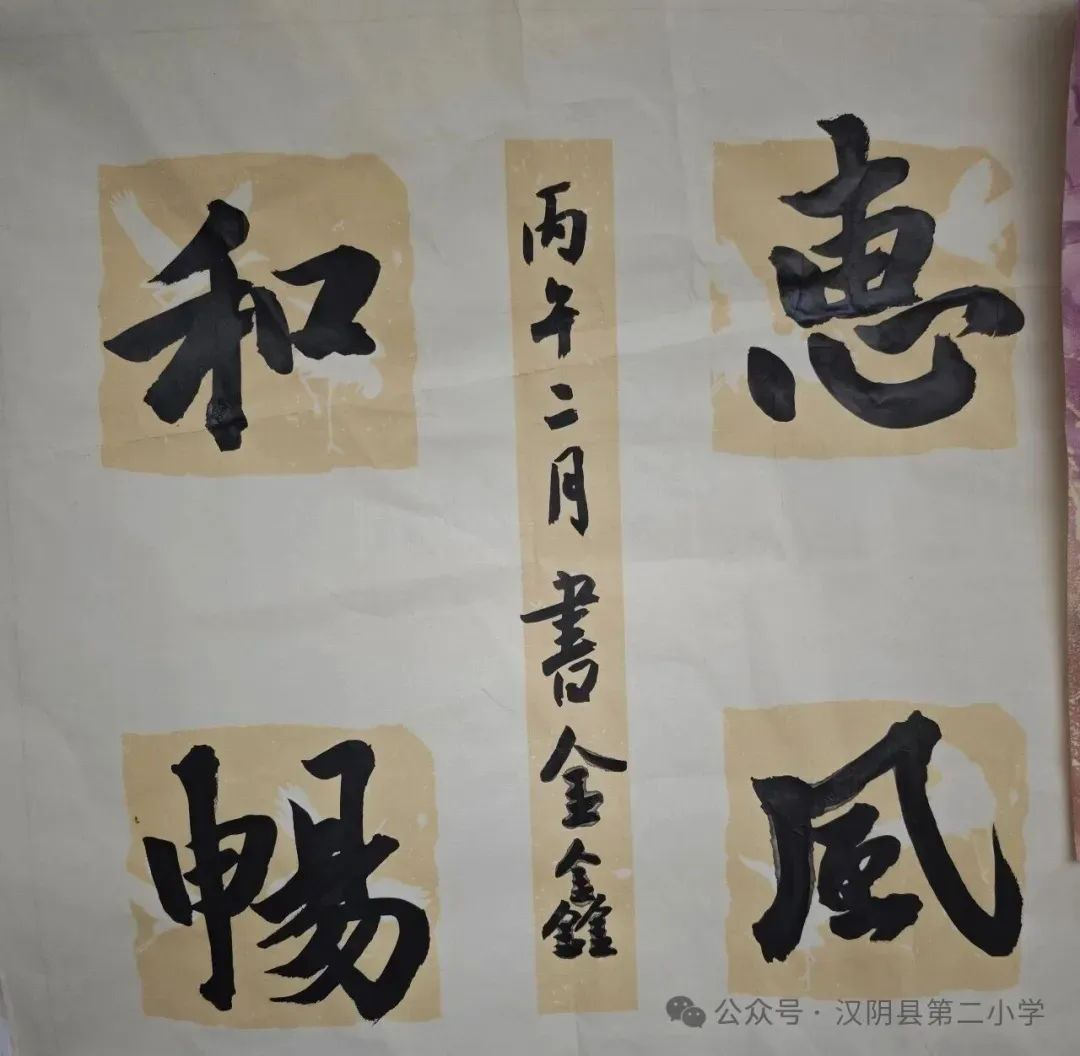 惠風
丙午二月書金鑫
和暢
公众号·汉阴县第二小学